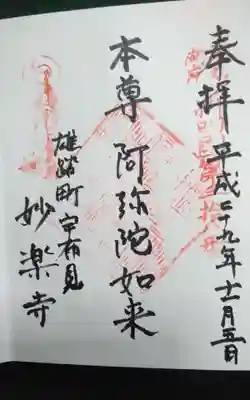 奉拝 平成二十九年十二月五日
本尊 阿弥陀如来
雄踏町宇布見
妙楽寺